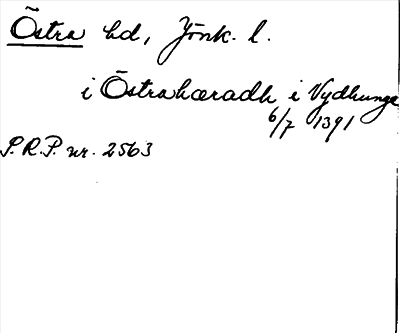 Östra hd, Jönk. l.
i Östrahæradh i Vydhunge
6/7 1391
P.R.P. nr. 2563